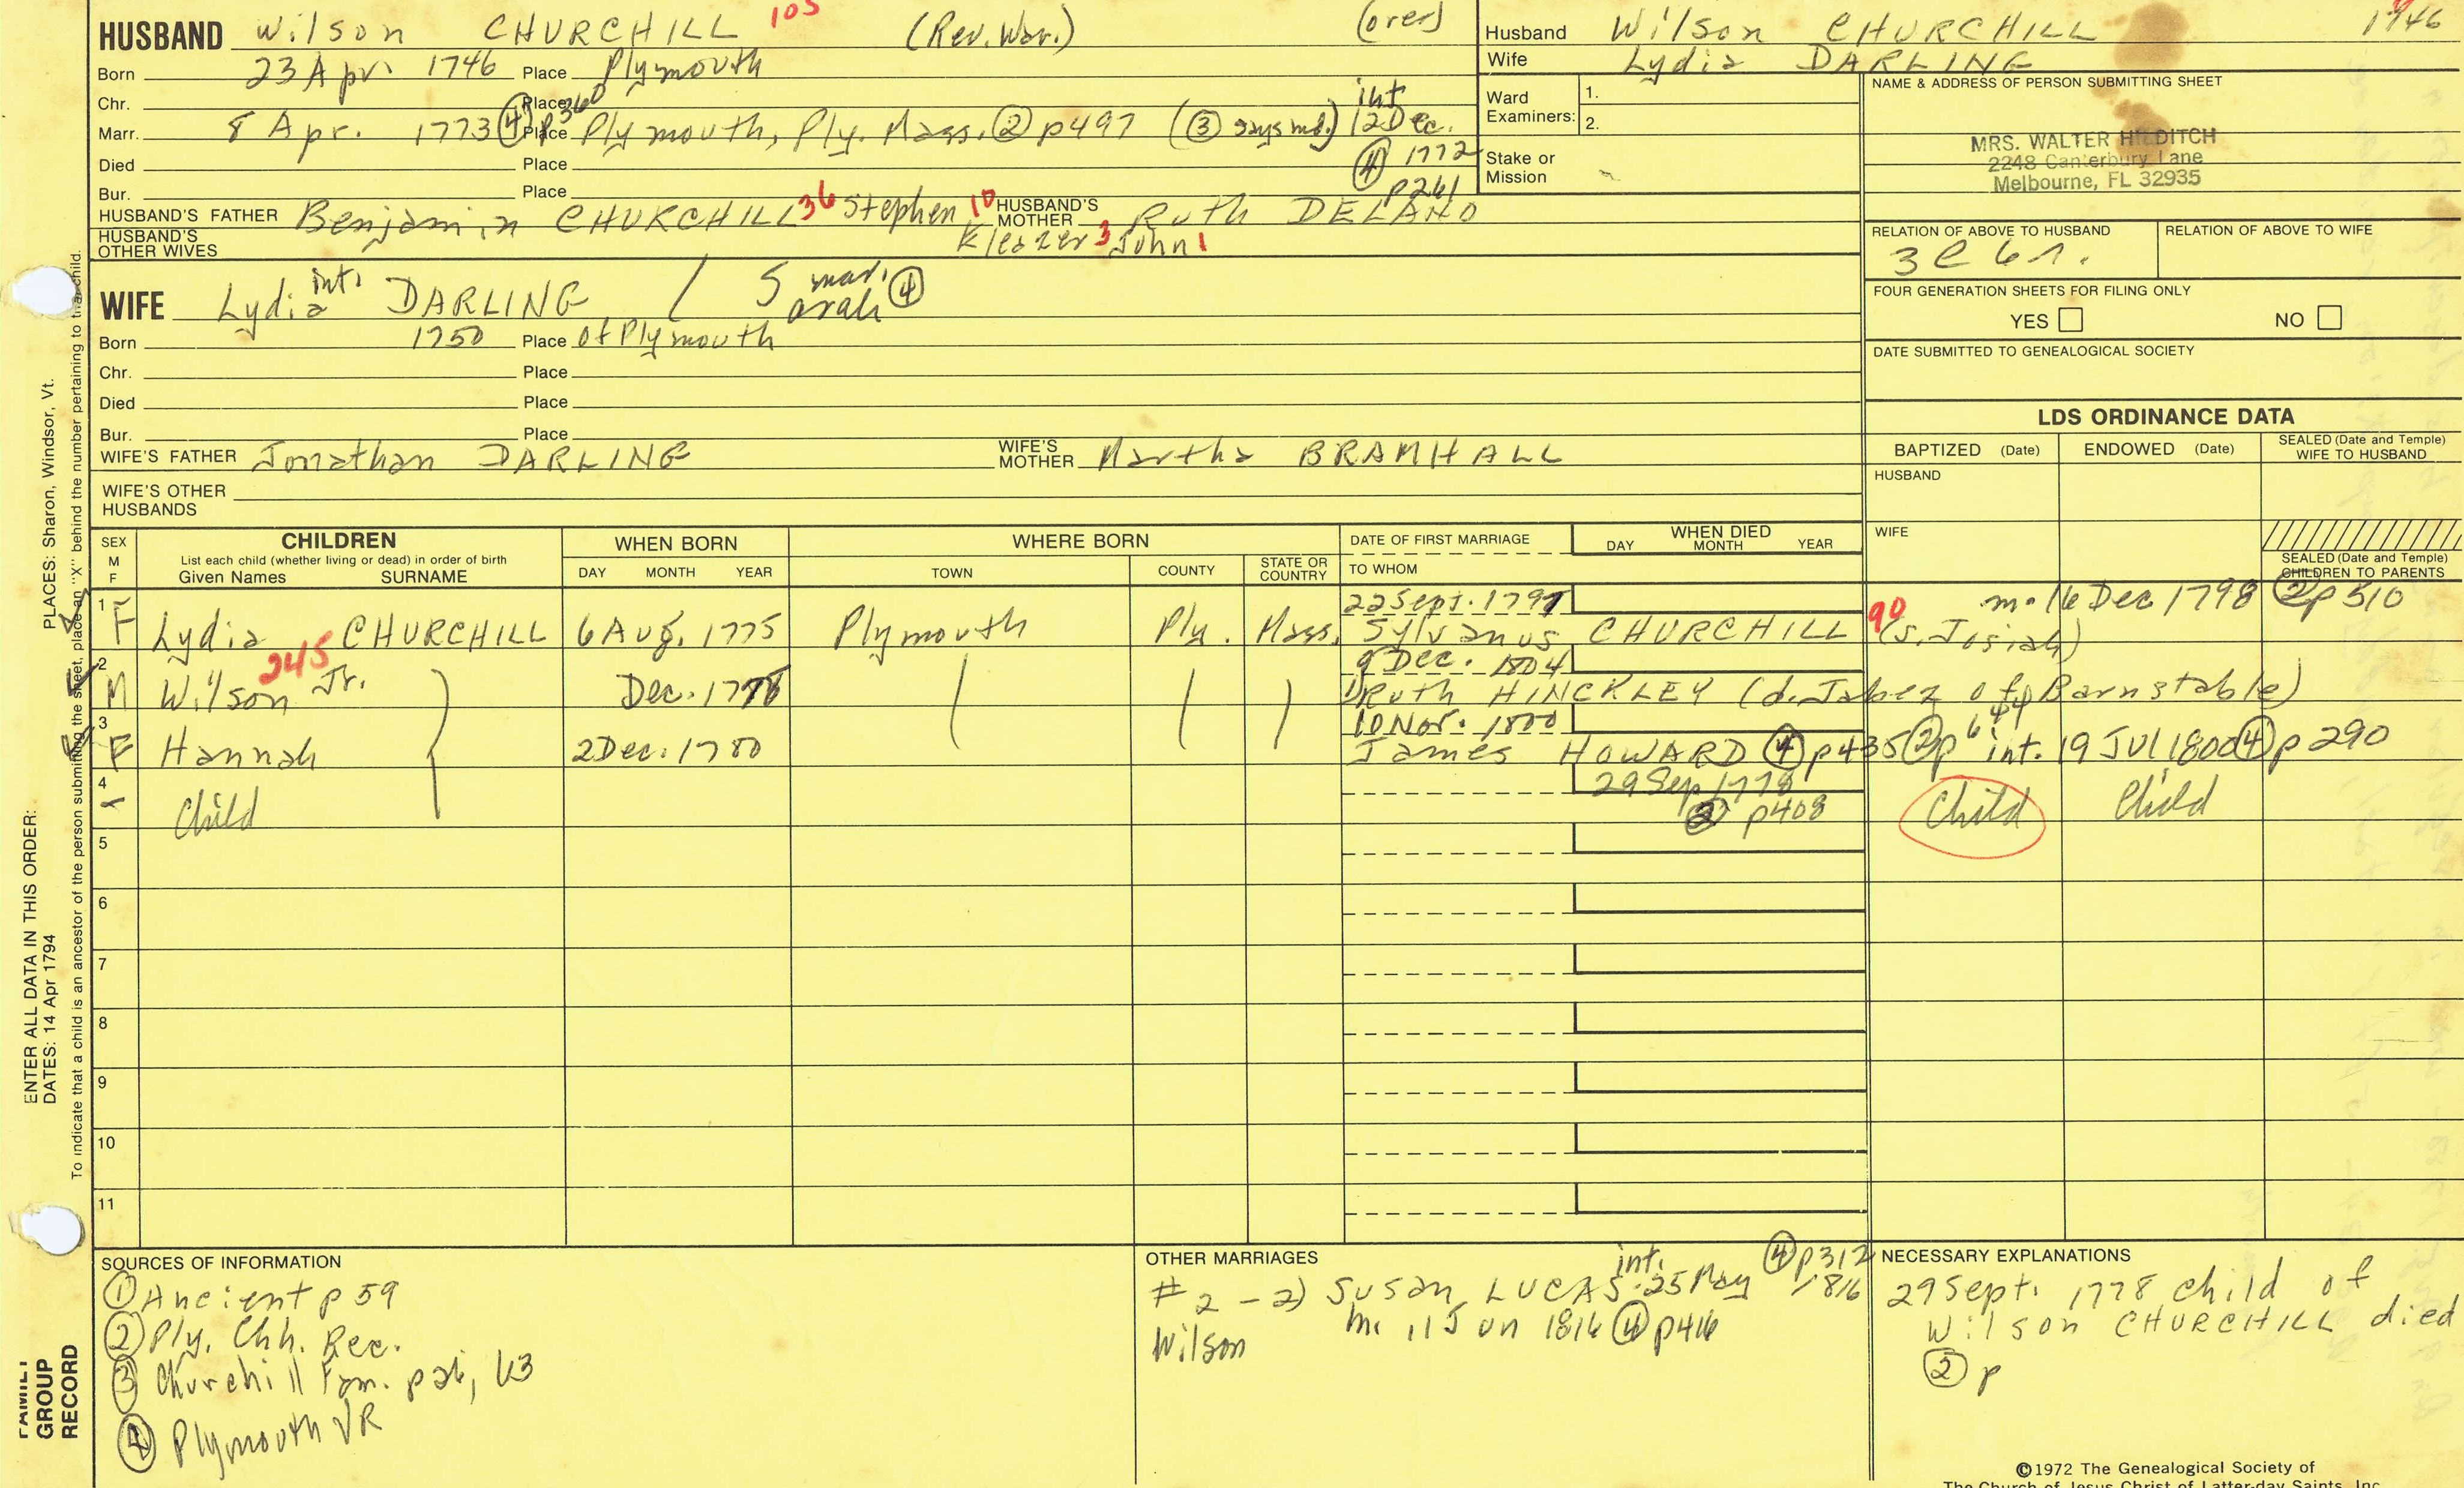 HUSBAND Wilson CHURCHILL 105 (Rev. War.) (over)
Born 23 Apr. 1746 Place Plymouth
Chr. Place
Marr. 8 Apr. 1773 ④ p360 Place Plymouth, Ply. Mass. ② p497 (③ says md.) int 12 Dec.
Died Place ④ 1772
Bur. Place p261
HUSBAND'S FATHER Benjamin CHURCHILL 36 Stephen 10 HUSBAND'S MOTHER Ruth DELANO
HUSBAND'S OTHER WIVES Eleazer 3 John 1
WIFE Lydia int. DARLING / Sarah mar. ④
Born 1750 Place of Plymouth
Chr. Place
Died Place
Bur. Place
WIFE'S FATHER Jonathan DARLING WIFE'S MOTHER Martha BRAMHALL
WIFE'S OTHER HUSBANDS
Husband Wilson CHURCHILL 1746
Wife Lydia DARLING
Ward Examiners: 1.
2.
Stake or Mission
NAME & ADDRESS OF PERSON SUBMITTING SHEET
MRS. WALTER HILDITCH
2248 Canterbury Lane
Melbourne, FL 32935
RELATION OF ABOVE TO HUSBAND RELATION OF ABOVE TO WIFE
3C6r.
FOUR GENERATION SHEETS FOR FILING ONLY
YES NO
DATE SUBMITTED TO GENEALOGICAL SOCIETY
LDS ORDINANCE DATA
BAPTIZED (Date) ENDOWED (Date) SEALED (Date and Temple) WIFE TO HUSBAND
HUSBAND
WIFE
SEALED (Date and Temple) CHILDREN TO PARENTS
SEX M F CHILDREN WHEN BORN WHERE BORN DATE OF FIRST MARRIAGE WHEN DIED
List each child (whether living or dead) in order of birth
Given Names SURNAME DAY MONTH YEAR TOWN COUNTY STATE OR COUNTRY TO WHOM DAY MONTH YEAR
1 22 Sept. 1797 m. 16 Dec 1798 ② p510
F Lydia CHURCHILL 6 Aug. 1775 Plymouth Ply. Mass. Sylvanus CHURCHILL 90 (s. Josiah)
2 245 9 Dec. 1804
M Wilson Jr. Dec. 1778 1) Ruth HINCKLEY (d. Jabez of Barnstable)
3 10 Nov. 1800
F Hannah 2 Dec. 1780 James HOWARD ④ p435 ② p644 int. 19 Jul 1800 ④ p290
4 29 Sep 1778
Child ② p408 Child Child
5
6
7
8
9
10
11
SOURCES OF INFORMATION
① Ancient p59
② Ply. Chh. Rec.
③ Churchill Fam. p26, 63
④ Plymouth VR
OTHER MARRIAGES
#2 - 2) Susan LUCAS int. 25 May 1816 ④ p312
Wilson m. 11 Jun 1816 ④ p416
NECESSARY EXPLANATIONS
29 Sept. 1778 child of
Wilson CHURCHILL died
② p
©1972 The Genealogical Society of
The Church of Jesus Christ of Latter-day Saints, Inc.
ENTER ALL DATA IN THIS ORDER:
DATES: 14 Apr 1794
PLACES: Sharon, Windsor, Vt.
To indicate that a child is an ancestor of the person submitting the sheet, place an "X" behind the number pertaining to that child.
FAMILY
GROUP
RECORD